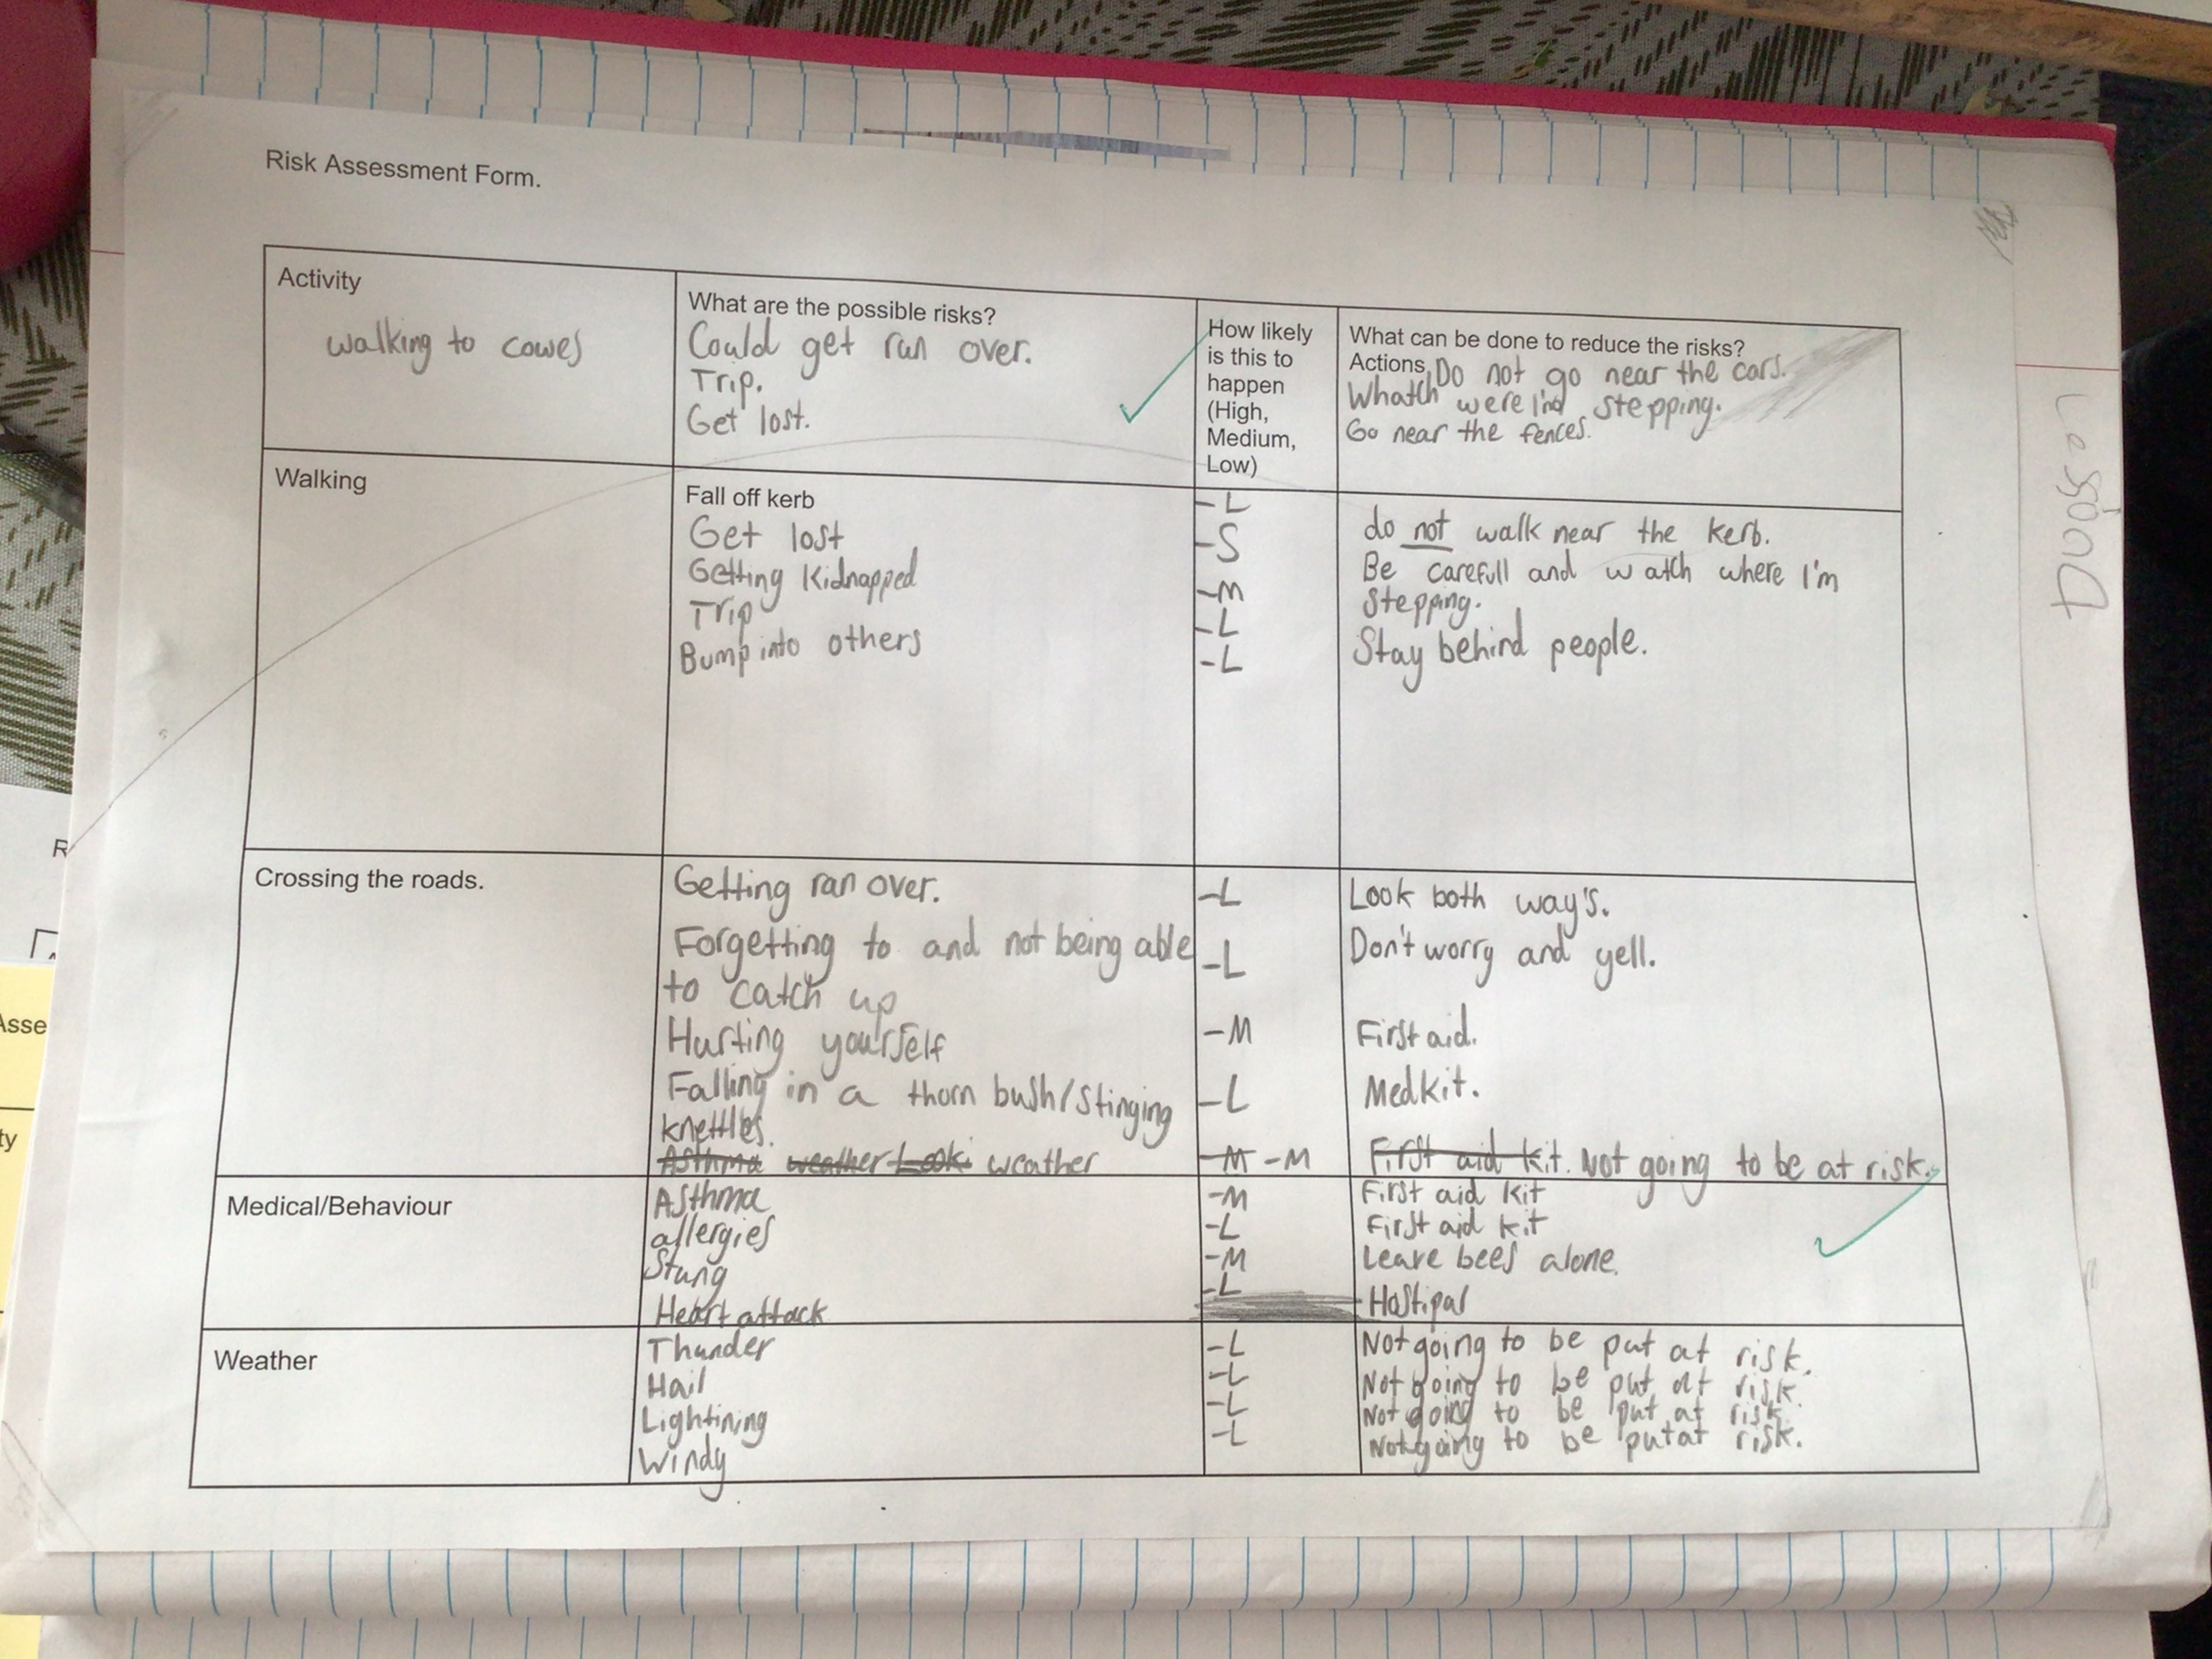 Risk Assessment Form.
Activity
walking to cowes
What are the possible risks?
Could get ran over.
Trip.
Get lost.
How likely
is this to
happen
(High,
Medium,
Low)
What can be done to reduce the risks?
Actions, Do not go near the cars.
Whatch were I'm stepping.
Go near the fences.
Walking
Fall off kerb
Get lost
Getting Kidnapped
Trip
Bump into others
-L
-S
-M
-L
-L
do not walk near the kerb.
Be carefull and watch where I'm
stepping.
Stay behind people.
Crossing the roads.
Getting ran over.
Forgetting to and not being able
to catch up
Hurting yourself
Falling in a thorn bush/Stinging
knettles.
Asthma weather Look weather
-L
-L
-M
-L
-M -M
Look both way's.
Don't worry and yell.
First aid.
Medkit.
First aid kit. Not going to be at risk.
Medical/Behaviour
Asthma
allergies
Stung
Heart attack
-M
-L
-M
-L
First aid kit
First aid kit
Leave bees alone.
Hostipal
Weather
Thunder
Hail
Lightining
Windy
-L
-L
-L
-L
Not going to be put at risk.
Not going to be put at risk.
Not going to be put at risk.
Not going to be put at risk.
R
Asse
ty